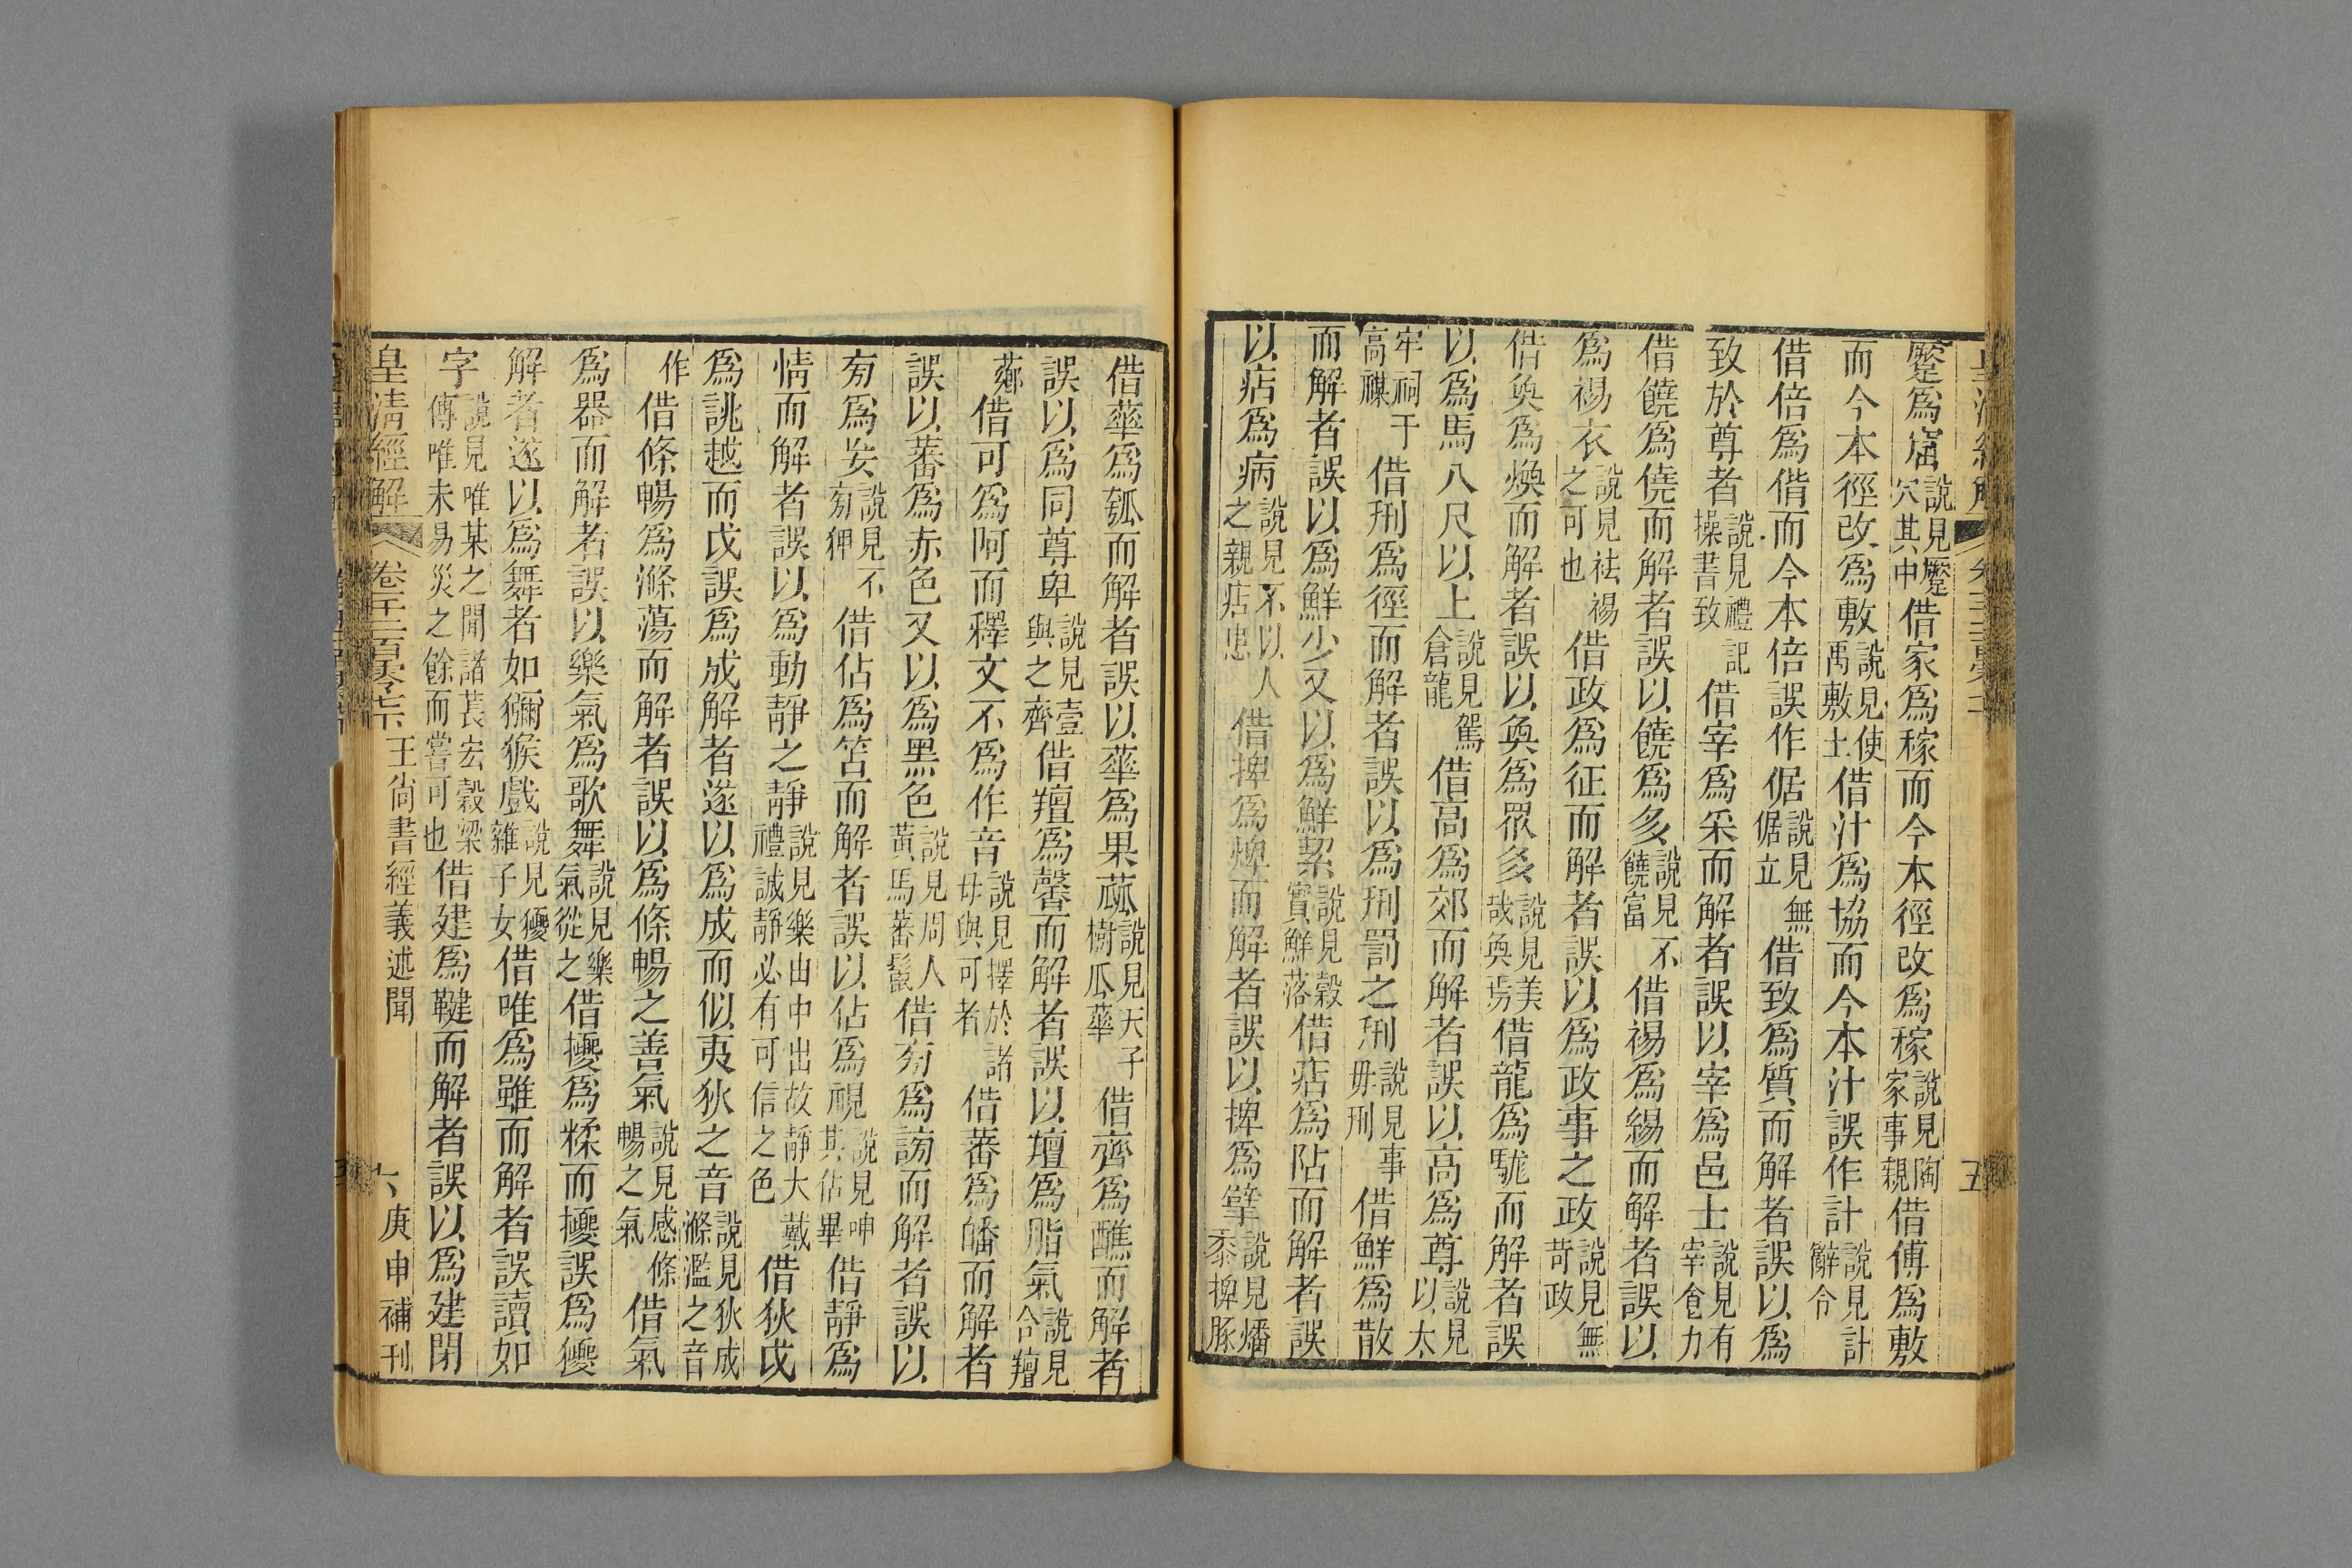 蹷爲窟說見蹷穴其中借家爲稼而今本徑改爲稼說見陶家事親借傅爲敷
而今本徑改爲敷說見使禹敷土借汁爲協而今本汁誤作計說見計辭令
借倍爲偝而今本倍誤作倨說見無倨立借致爲質而解者誤以爲
致於尊者說見禮記操書致借宰爲采而解者誤以宰爲邑士說見有宰食力
借饒爲僥而解者誤以饒爲多說見不饒富借裼爲緆而解者誤以
爲裼衣說見袪裼之可也借政爲征而解者誤以爲政事之政說見無苛政
借奐爲煥而解者誤以奐爲眾多說見美哉奐焉借龍爲駹而解者誤
以爲馬八尺以上說見駕倉龍借高爲郊而解者誤以高爲尊說見以太
牢祠于高禖借刑爲徑而解者誤以爲刑罰之刑說見事毋刑借鮮爲散
而解者誤以爲鮮少又以爲鮮絜說見穀實鮮落借痁爲阽而解者誤
以痁爲病說見不以人之親痁患借捭爲焷而解者誤以捭爲擘說見燔黍捭豚
借華爲瓠而解者誤以華爲果蓏說見天子樹瓜華借齊爲醮而解者
誤以爲同尊卑說見壹與之齊借羶爲馨而解者誤以羶爲脂氣說見合羶
薌借可爲阿而釋文不爲作音說見擇於諸母與可者借蕃爲皤而解者
誤以蕃爲赤色又以爲黑色說見周人黃馬蕃鬣借菊爲謗而解者誤以
菊爲妄說見不菊狎借佔爲笘而解者誤以佔爲視說見呻其佔畢借靜爲
情而解者誤以爲動靜之靜說見樂由中出故靜大戴禮誠靜必有可信之色借狄戉
爲誂越而戉誤爲成解者遂以爲成而似夷狄之音說見狄成滌濫之音
作借條暢爲滌蕩而解者誤以爲條暢之善氣說見感條暢之氣借氣
爲器而解者誤以樂氣爲歌舞說見樂氣從之借擾爲糅而擾誤爲獶
解者遂以爲舞者如獼猴戲說見獶雜子女借唯爲雖而解者誤讀如
字說見唯某之聞諸萇宏穀梁傳唯未易災之餘而嘗可也借建爲鞬而解者誤以爲建閉
皇清經解 卷千二百零六 王尚書經義述聞 六 庚申補刊